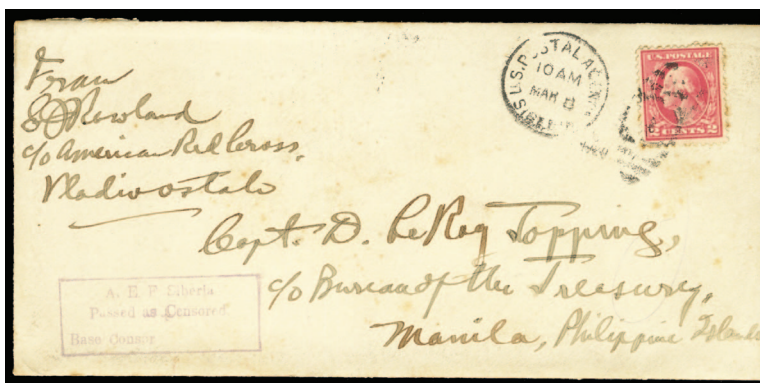 From
Rowland
c/o American Red Cross,
Vladivostok
U.S. POSTAL AGENCY
10 AM
MAR 8
SIBERIA
U.S. POSTAGE
2 CENTS 2
Capt. D. LeRoy Topping,
c/o Bureau of the Treasury,
Manila, Philippine Islands
A. E. F. Siberia
Passed as Censored
Base Censor